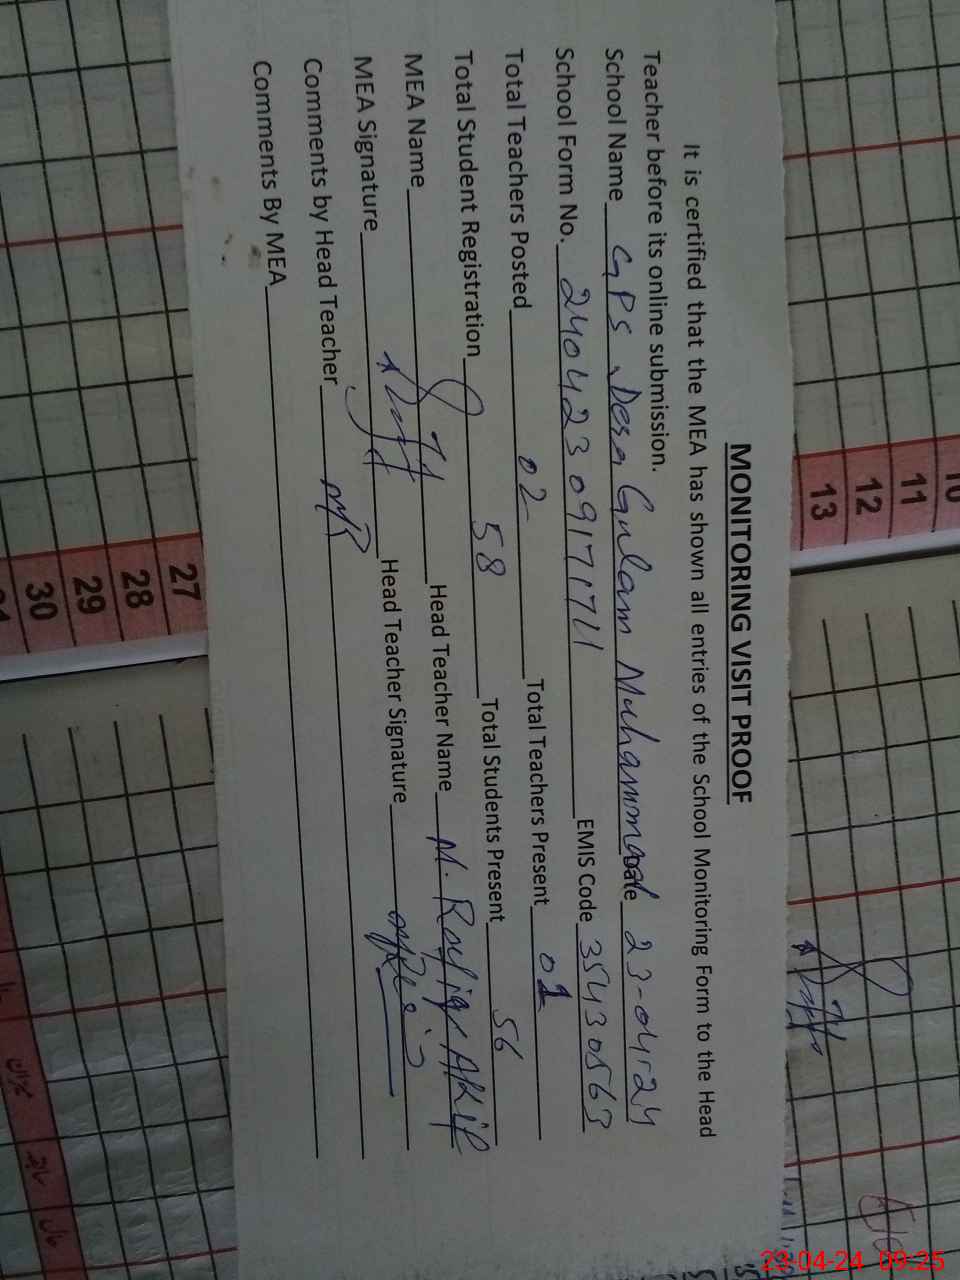 MONITORING VISIT PROOF
It is certified that the MEA has shown all entries of the School Monitoring Form to the Head
Teacher before its online submission.
School Name GPS Dera Gulam Muhammad Date 23-04-24
School Form No. 2404230917171 EMIS Code 35430563
Total Teachers Posted 02 Total Teachers Present 01
Total Student Registration 58 Total Students Present 56
MEA Name Head Teacher Name M. Rafiq Akif
MEA Signature Head Teacher Signature
Comments by Head Teacher
Comments By MEA
10
11
12
13
27
28
29
30
23-04-24 09:25